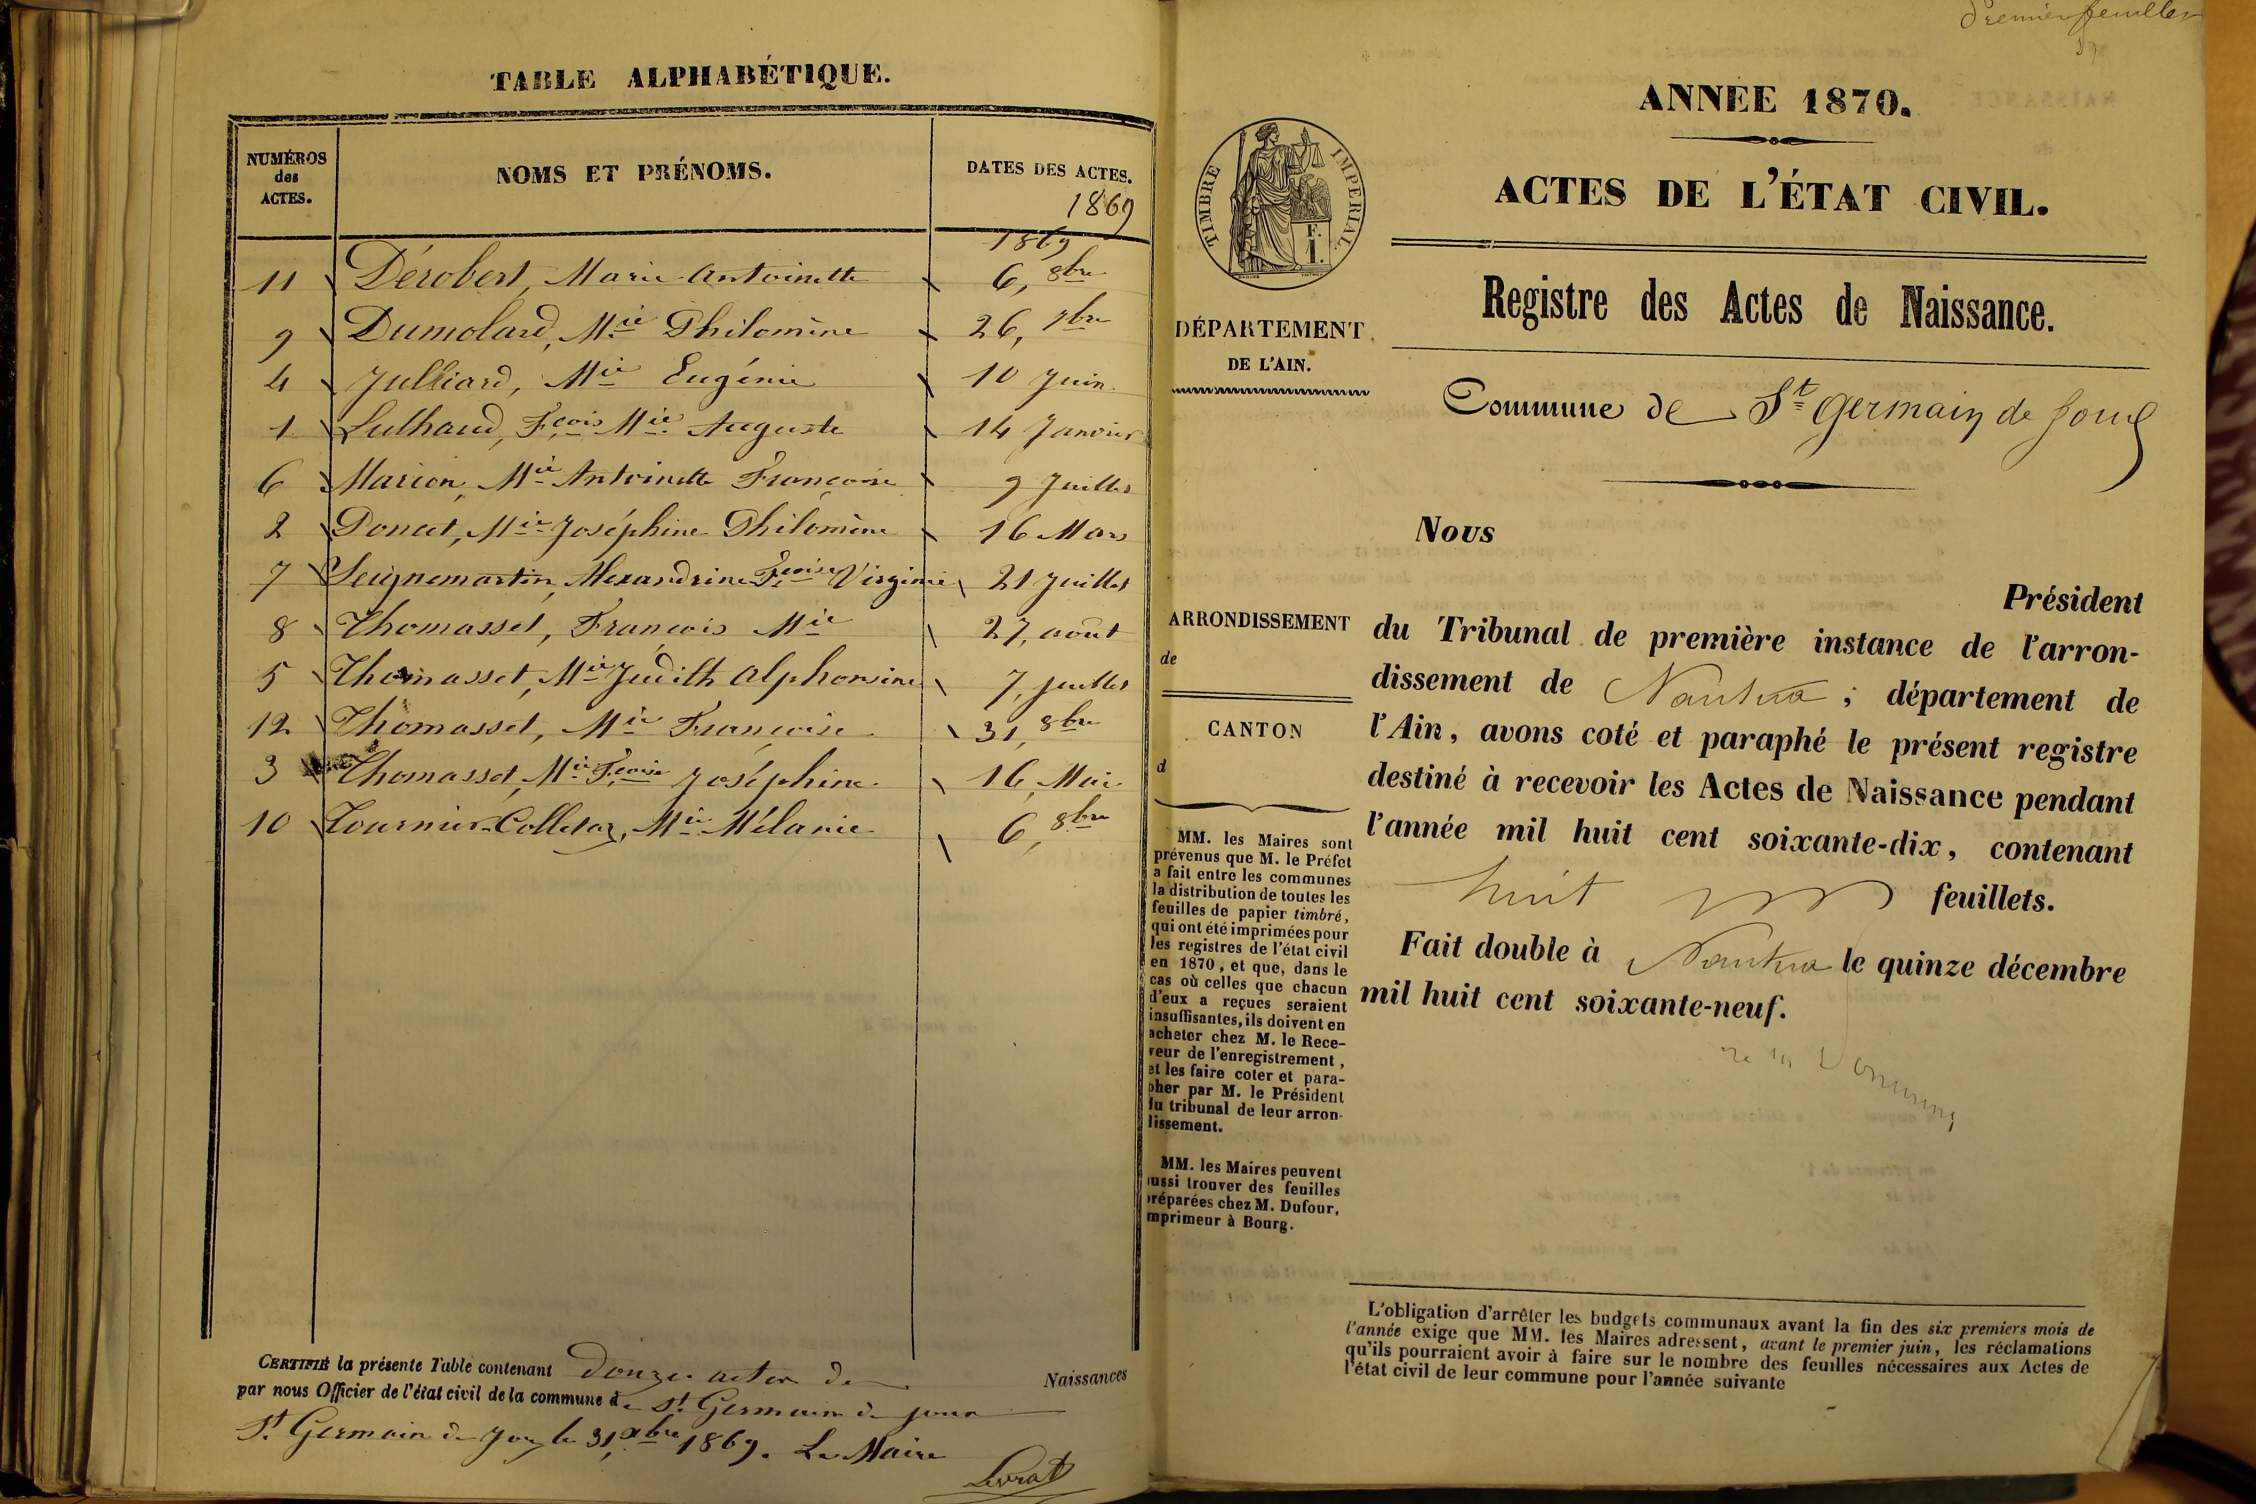 TABLE ALPHABÉTIQUE.
NUMÉROS des ACTES.
NOMS ET PRÉNOMS.
DATES DES ACTES.
1869
1869
11 Dérobert, Marie Antoinette 6, 8bre
9 Dumolard, Mie Philomène 26, 7bre
4 Julliard, Mie Eugénie 10 Juin
1 Lulhaud, Fçois Mie Auguste 14 Janvier
6 Marion, Mie Antoinette Françoise 9 Juillet
2 Poncet, Mie Joséphine Philomène 16 Mars
7 Seignemartin, Alexandrine Fçoise Virginie 21 Juillet
8 Thomasset, François Mie 27, août
5 Thomasset, Mie Judith Alphonsine 7, juillet
12 Thomasset, Mie Françoise 31, 8bre
3 Thomasset, Mie Fçoise Joséphine 16, Mai
10 Tournier-Colletaz, Mie Mélanie 6, 8bre
CERTIFIÉ la présente Table contenant Douze actes de Naissances
par nous Officier de l'état civil de la commune de St Germain de joux
St Germain de Joux le 31, xbre 1869. Le Maire
Levrat
Premier feuillet
ANNÉE 1870.
ACTES DE L'ÉTAT CIVIL.
TIMBRE IMPÉRIAL
F.
1.
Registre des Actes de Naissance.
DÉPARTEMENT
DE L'AIN.
Commune de St Germain de Joux
ARRONDISSEMENT
de
CANTON
d
MM. les Maires sont
prévenus que M. le Préfet
a fait entre les communes
la distribution de toutes les
feuilles de papier timbré,
qui ont été imprimées pour
les registres de l'état civil
en 1870, et que, dans le
cas où celles que chacun
d'eux a reçues seraient
insuffisantes, ils doivent en
acheter chez M. le Rece-
veur de l'enregistrement,
et les faire coter et para-
pher par M. le Président
du tribunal de leur arron-
dissement.
MM. les Maires peuvent
aussi trouver des feuilles
préparées chez M. Dufour,
imprimeur à Bourg.
Nous
Président
du Tribunal de première instance de l'arron-
dissement de Nantua ; département de
l'Ain, avons coté et paraphé le présent registre
destiné à recevoir les Actes de Naissance pendant
l'année mil huit cent soixante-dix, contenant
huit feuillets.
Fait double à Nantua le quinze décembre
mil huit cent soixante-neuf.
L'obligation d'arrêter les budgets communaux avant la fin des six premiers mois de
l'année exige que MM. les Maires adressent, avant le premier juin, les réclamations
qu'ils pourraient avoir à faire sur le nombre des feuilles nécessaires aux Actes de
l'état civil de leur commune pour l'année suivante